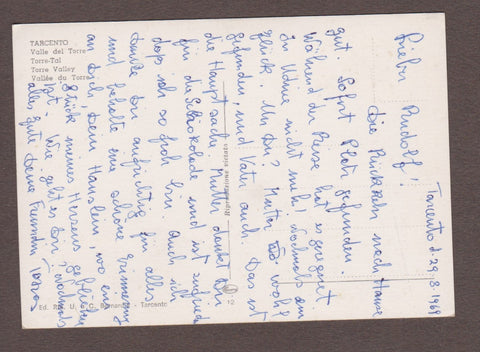 TARCENTO
Valle del Torre
Torre-Tal
Torre Valley
Vallée du Torre
Tarcento d. 29.8.1969
Lieber Rudolf!
Die Rückkehr nach Hause
gut. Sofort Platz gefunden.
Während der Reise hat es geregnet
in Udine nicht mehr. Nochmals ein
Glück. Und Du? Mutter wohl
gefunden, und Vater auch. Das ist
die Hauptsache. Mutter dankt Dir
für die Schokolade und ist zufrieden
dass ich so froh bin. Auch ich
danke Dir aufrichtig für alles
und behalte eine schöne Erinnerung
an Dich, Dein Häuslein, wo ein
Stück meines Herzens geblieben
ist. Wie geht es Dir? Nochmals
alles gute Deine Freundin
Riproduzione vietata
12
Tarcento